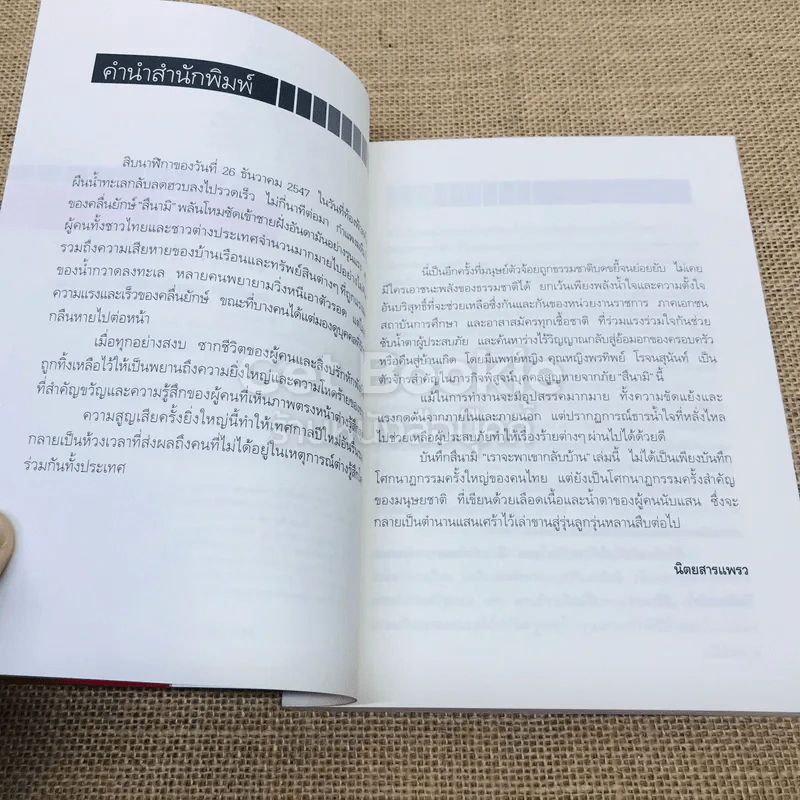 คำนำสำนักพิมพ์
สิบนาฬิกาของวันที่ 26 ธันวาคม 2547 ในวันที่ท้องฟ้า
ผืนน้ำทะเลกลับลดฮวบลงไปรวดเร็ว ไม่กี่นาทีต่อมา กำแพง
ของคลื่นยักษ์ "สึนามิ" พลันโหมซัดเข้าชายฝั่งอันดามันอย่างรุนแรง
ผู้คนทั้งชาวไทยและชาวต่างประเทศจำนวนมากมายไปอย่าง
รวมถึงความเสียหายของบ้านเรือนและทรัพย์สินต่างๆ ที่ถูก
ของน้ำกวาดลงทะเล หลายคนพยายามวิ่งหนีเอาตัวรอด แต่
ความแรงและเร็วของคลื่นยักษ์ ขณะที่บางคนได้แต่มองดูบุคคล
กลืนหายไปต่อหน้า
เมื่อทุกอย่างสงบ ซากชีวิตของผู้คนและสิ่งปรักหักพัง
ถูกทิ้งเหลือไว้ให้เป็นพยานถึงความยิ่งใหญ่และความโหดร้ายของ
ที่สำคัญขวัญและความรู้สึกของผู้คนที่เห็นภาพตรงหน้าต่าง
ความสูญเสียครั้งยิ่งใหญ่นี้ทำให้เทศกาลปีใหม่อัน
กลายเป็นห้วงเวลาที่ส่งผลถึงคนที่ไม่ได้อยู่ในเหตุการณ์ต่างรู้สึก
ร่วมกันทั้งประเทศ
นี่เป็นอีกครั้งที่มนุษย์ตัวจ้อยถูกธรรมชาติบดขยี้จนย่อยยับ ไม่เคย
มีใครเอาชนะพลังของธรรมชาติได้ ยกเว้นเพียงพลังน้ำใจและความตั้งใจ
อันบริสุทธิ์ที่จะช่วยเหลือซึ่งกันและกันของหน่วยงานราชการ ภาคเอกชน
สถาบันการศึกษา และอาสาสมัครทุกเชื้อชาติ ที่ร่วมแรงร่วมใจกันช่วย
ซับน้ำตาผู้ประสบภัย และค้นหาร่างไร้วิญญาณกลับสู่อ้อมอกของครอบครัว
หรือคืนสู่บ้านเกิด โดยมีแพทย์หญิง คุณหญิงพรทิพย์ โรจนสุนันท์ เป็น
ตัวจักรสำคัญในภารกิจพิสูจน์บุคคลสูญหายจากภัย "สึนามิ" นี้
แม้ในการทำงานจะมีอุปสรรคมากมาย ทั้งความขัดแย้งและ
แรงกดดันจากภายในและภายนอก แต่ปรากฏการณ์ธารน้ำใจที่หลั่งไหล
ไปช่วยเหลือผู้ประสบภัยทำให้เรื่องร้ายต่างๆ ผ่านไปได้ด้วยดี
บันทึกสึนามิ "เราจะพาเขากลับบ้าน" เล่มนี้ ไม่ได้เป็นเพียงบันทึก
โศกนาฏกรรมครั้งใหญ่ของคนไทย แต่ยังเป็นโศกนาฏกรรมครั้งสำคัญ
ของมนุษยชาติ ที่เขียนด้วยเลือดเนื้อและน้ำตาของผู้คนนับแสน ซึ่งจะ
กลายเป็นตำนานแสนเศร้าไว้เล่าขานสู่รุ่นลูกรุ่นหลานสืบต่อไป
นิตยสารแพรว
Get Bookie
ร้านหนังสือเก็ต